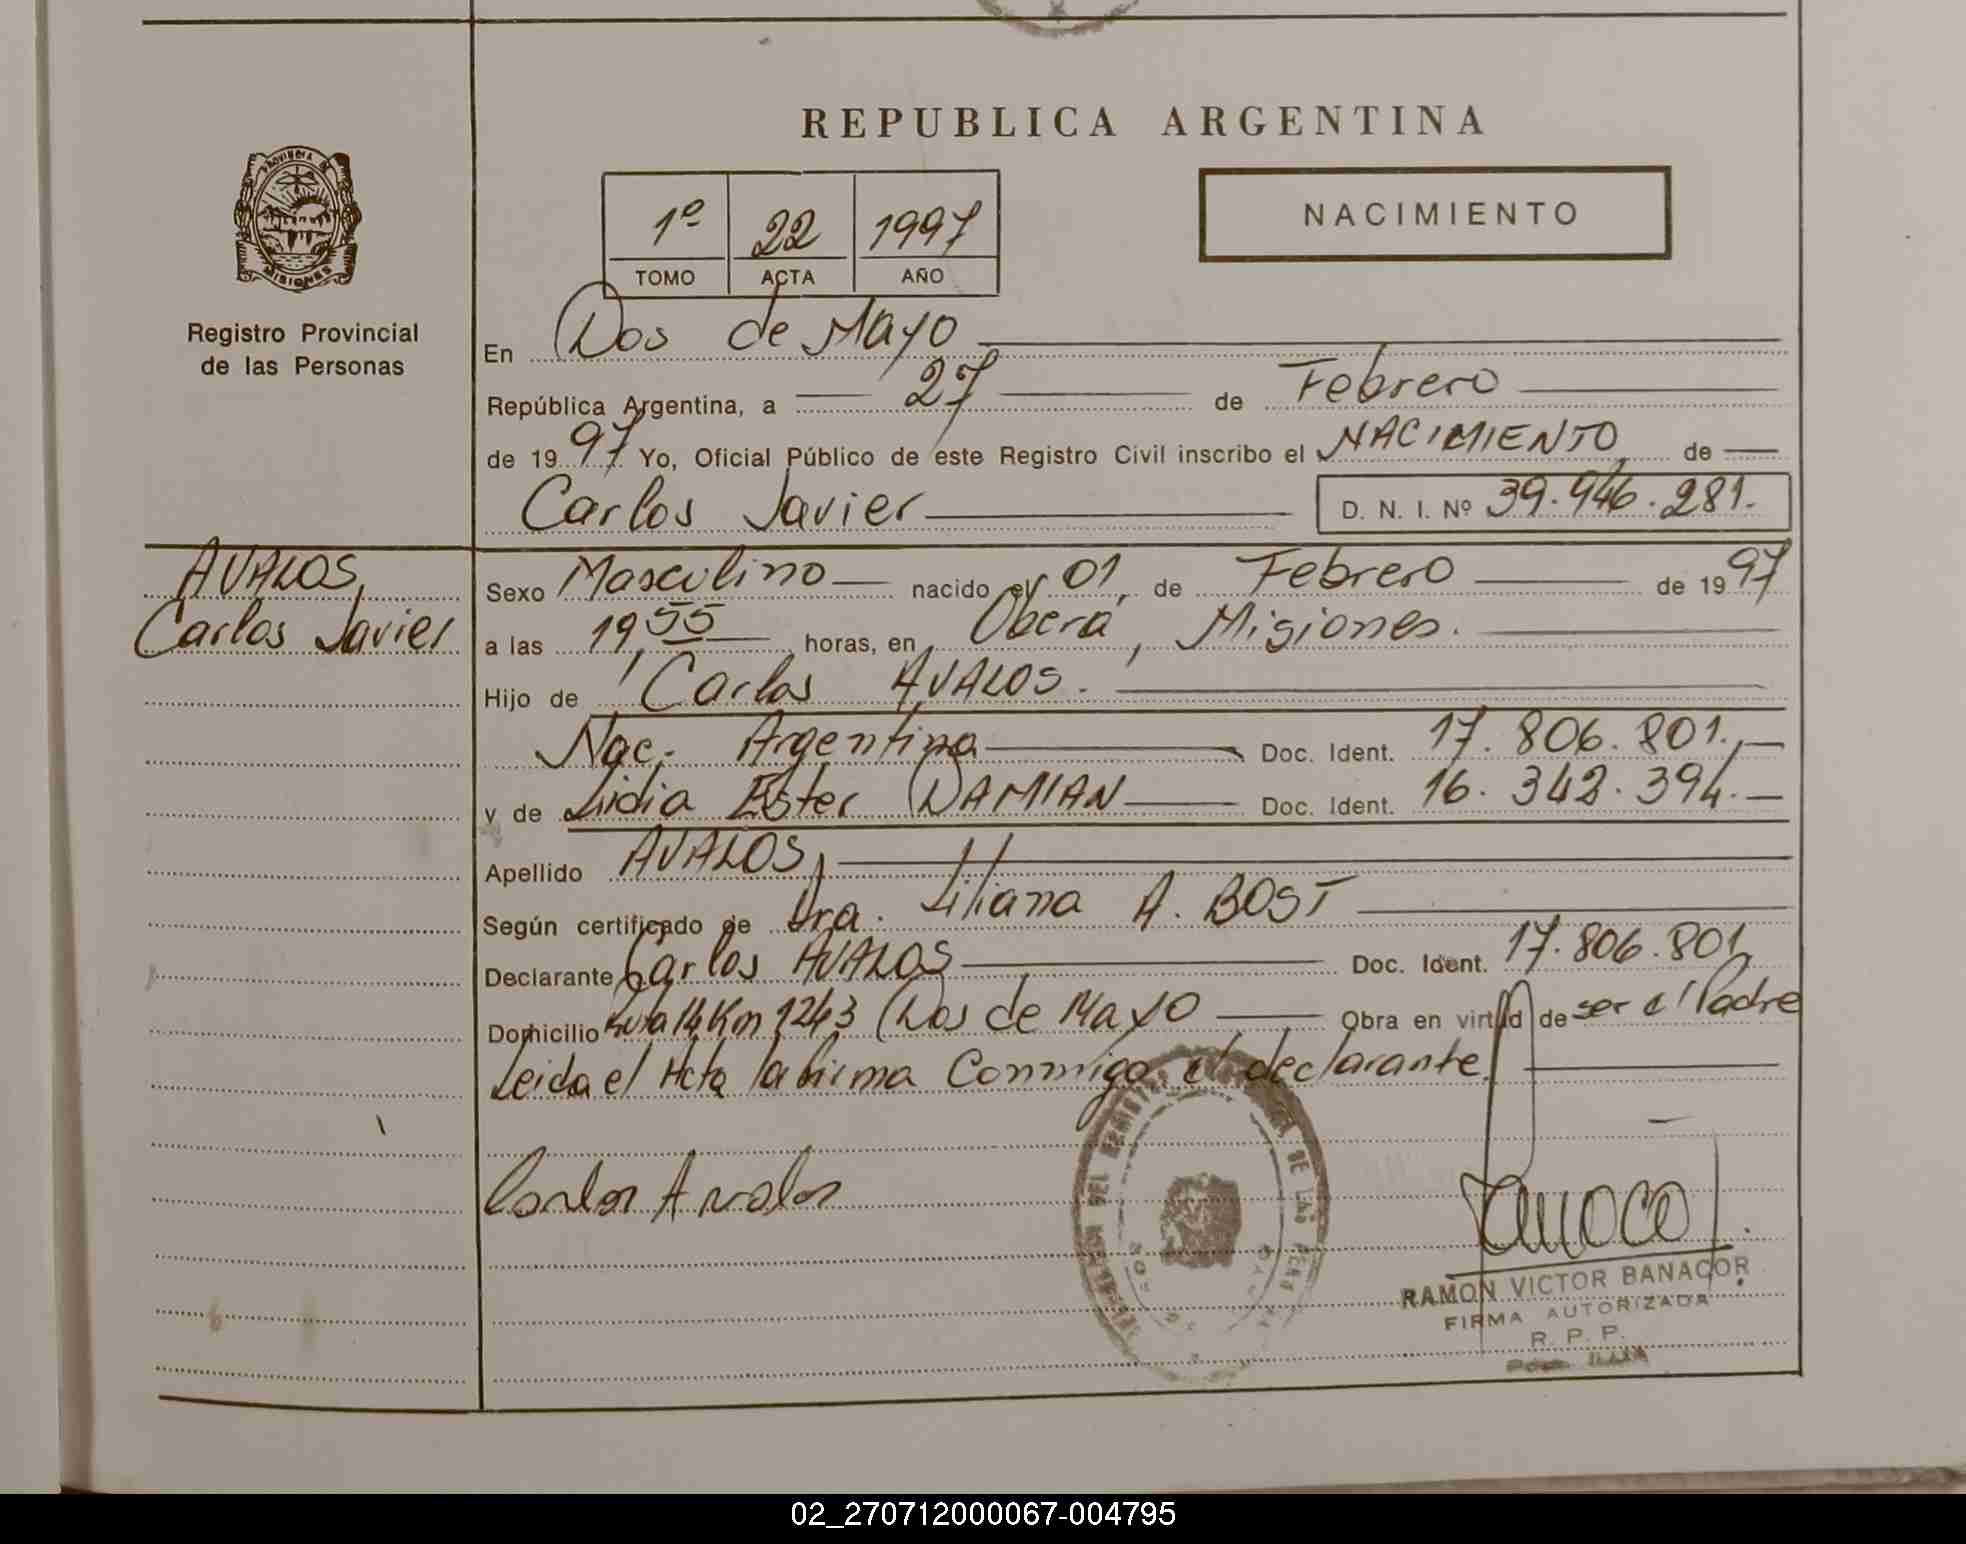 REPUBLICA ARGENTINA
PROVINCIA DE MISIONES
Registro Provincial
de las Personas
1º 22 1997
TOMO ACTA AÑO
NACIMIENTO
En Dos de Mayo
República Argentina, a 27 de Febrero
de 1997 Yo, Oficial Público de este Registro Civil inscribo el NACIMIENTO, de
Carlos Javier D. N. I. Nº 39.946.281.
AVALOS,
Carlos Javier
Sexo Masculino nacido el 01, de Febrero de 1997
a las 19,55 horas, en Oberá, Misiones.
Hijo de Carlos AVALOS.
Nac. Argentina Doc. Ident. 17.806.801.
y de Lidia Ester DAMIAN Doc. Ident. 16.342.394.
Apellido AVALOS,
Según certificado de Dra. Liliana A. BOST
Declarante Carlos AVALOS Doc. Ident. 17.806.801,
Domicilio Ruta 14 Km 1243 Dos de Mayo Obra en virtud de ser el Padre
Leida el Acta la firma Conmigo el declarante.
Carlos Avalos
RAMON VICTOR BANACOR
FIRMA AUTORIZADA
R. P. P.
02_270712000067-004795